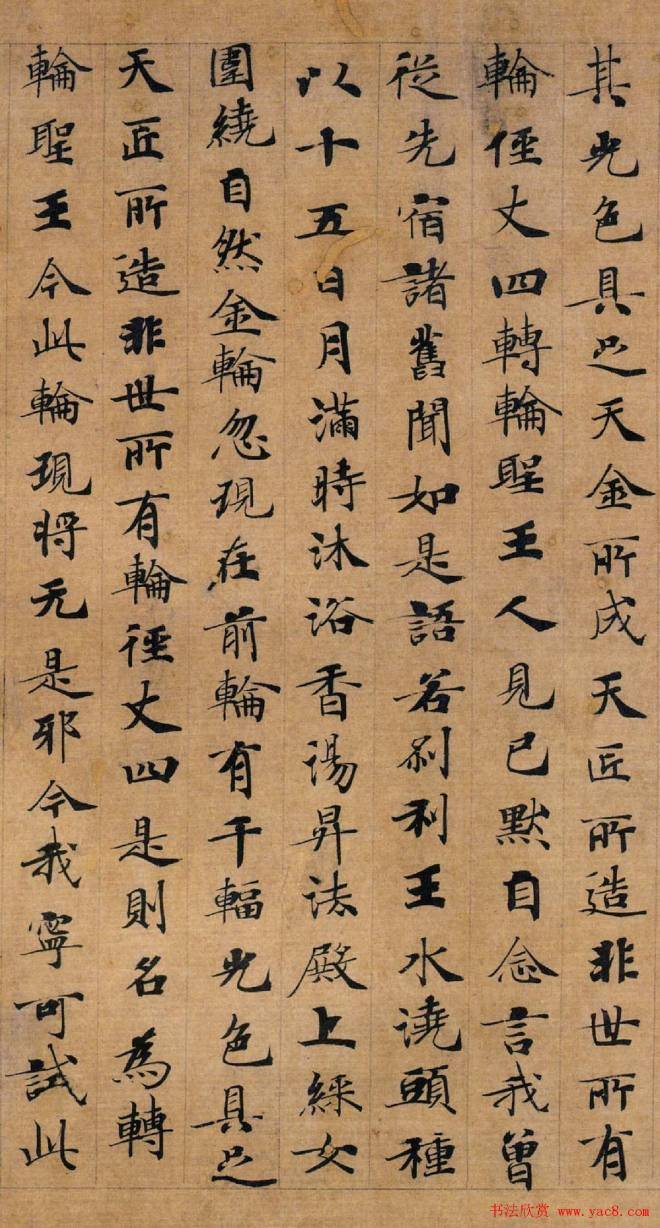 其光色具足天金所成天匠所造非世所有
輪俓丈四轉輪聖王人見已默自念言我曾
從先宿諸舊聞如是語若刹利王水澆頭種
以十五日月滿時沐浴香湯昇法殿上綵女
圍繞自然金輪忽現在前輪有千輻光色具足
天匠所造非世所有輪徑丈四是則名為轉
輪聖王今此輪現將无是邪今我寧可試此
书法欣赏 www.yac8.com